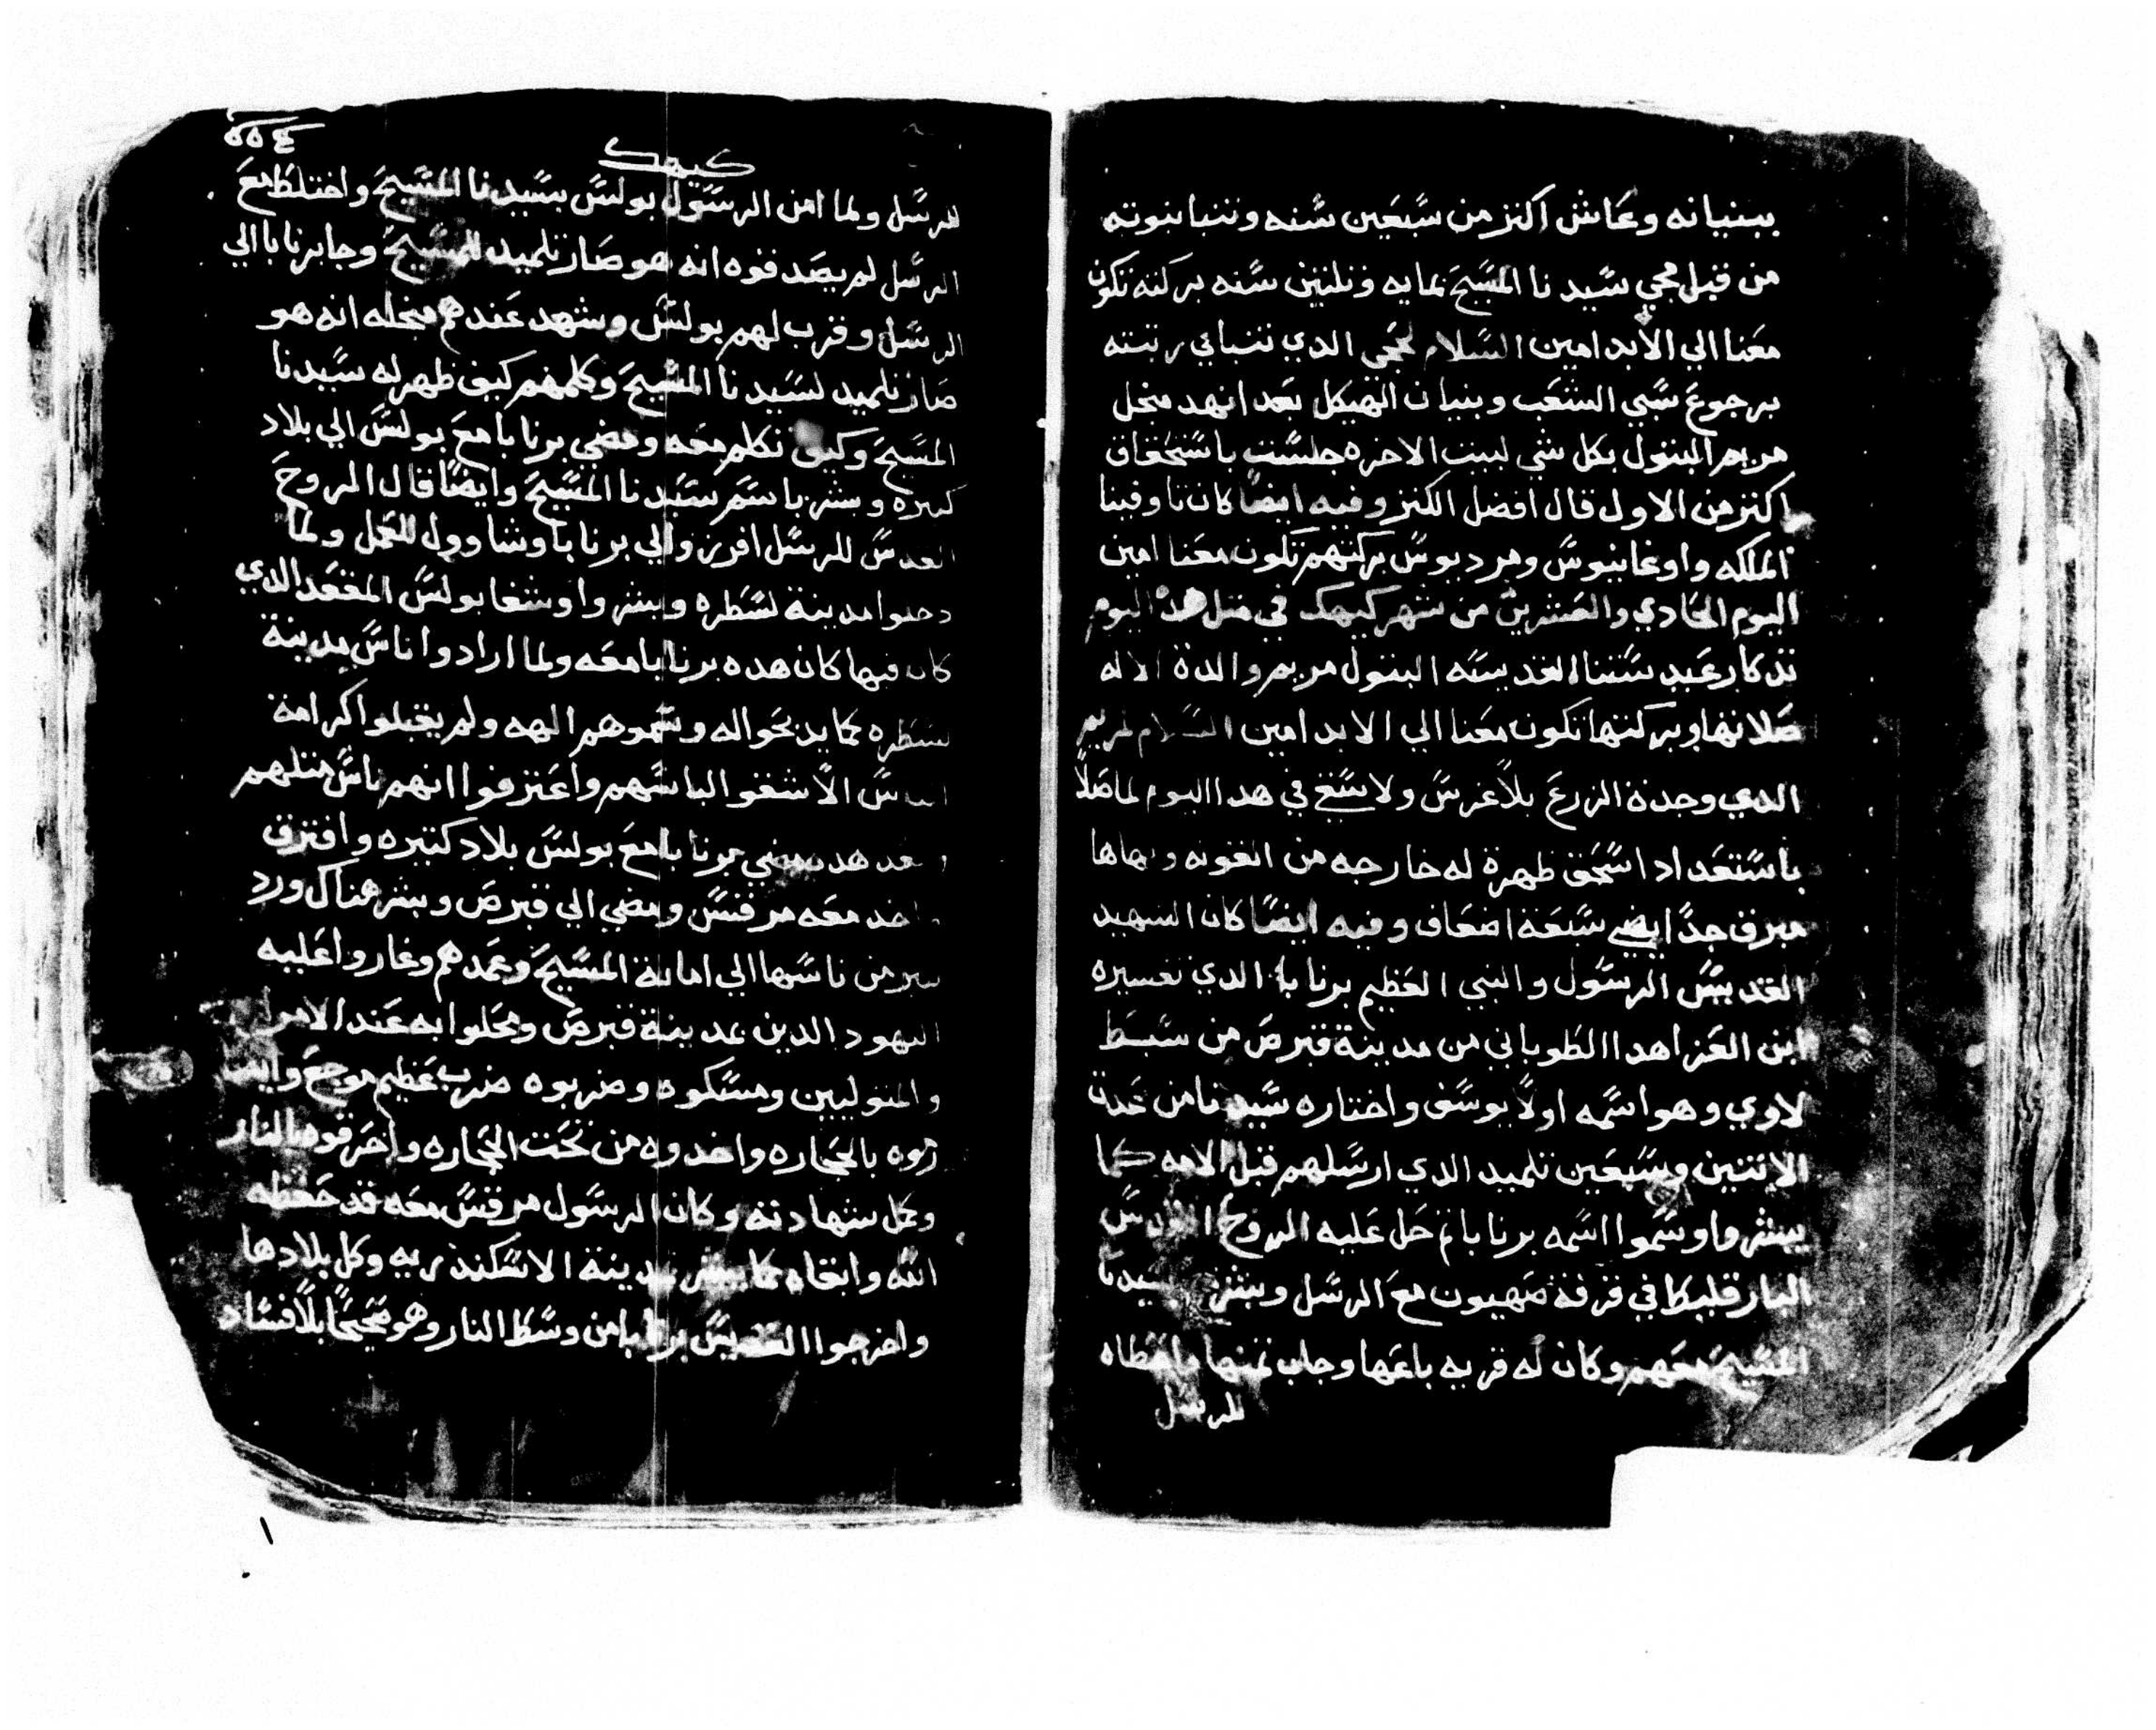 ببنيانه وعاش اكثر من سبعين سنه وتنبا نبوته
من قبل مجي سيدنا المسيح بمايه وثلثين سنه بركته تكون
معنا الي الابد امين السلام لحجي الدي تنبا في رتبته
برجوع سبي الشعب وبنيان الهيكل بعد انهد منجل
مريم البتول بكل شي لبيت الاخره جلست باستحقاق
اكثر من الاول قال افضل الكنز وفيه ايضا كان نا وفينا
الملكه واوغانيوس وهرديوس بركتهم تكون معنا امين
اليوم الحادي والعشرين من شهر كيهك في مثل هدا اليوم
تدكار عيد ستنا القديسه البتول مريم والدة الاله
صلاتها وبركتها تكون معنا الي الابد امين السلام لمريم
الدي وجدة الزرع بلا غرس ولا سقي في هدا اليوم لما صلا
باستعداد اسحق ظهرة له خارجه من القونه وبهاها
مبرق جدا ايضي سبعة اضعاف وفيه ايضا كان الشهيد
القديس الرسول والنبي العظيم برنابا الدي تفسيره
ابن العزا هدا الطوباني من مدينة قبرص من سبط
لاوي وهو اسمه اولا يوسف واختاره سيدنا من عدة
الاتنين وسبعين تلميد الدي ارسلهم قبل الامه كما
يبشروا وسموا اسمه برنابا ثم حل عليه الروح القدس
البارقليكا في غرفة صهيون مع الرسل وبشر بسيدنا
المسيح معهم وكان له قريه باعها وجاب ثمنها واعطاه
للرسل
كيهك
للرسل ولما امن الرسول بولس بسيدنا المسيح واختلط مع
الرسل لم يصدقوه انه هو صار تلميد للمسيح وجا برنابا الي
الرسل وقرب لهم بولس وشهد عندهم منجله انه هو
صار تلميد لسيدنا المسيح وكلمهم كيف ظهر له سيدنا
المسيح وكيف تكلم معه ومضي برنابا مع بولس الي بلاد
كتيره وبشر باسم سيدنا المسيح وايضا قال الروح
القدس للرسل افرزوا لي برنابا وشاوول للعمل ولما
دخلوا مدينة لسطره وبشروا وشفا بولس المقعد الدي
كان فيها كان هده برنابا معه ولما ارادوا ناس مدينة
لسطره كما يدبحوا له وسموهم الهه ولم يقبلوا كرامة
الناس الا شقوا لباسهم واعترفوا انهم ناس متلهم
وبعد هدا مضي برنابا مع بولس بلاد كتيره وافترق
واخد معه مرقس ومضي الي قبرص وبشر هناك ورد
كتير من ناسها الي امانة المسيح وعمدهم وغاروا عليه
اليهود الدين بمدينة قبرص ومحلوا به عند الامرا
والمتوليين ومسكوه وضربوه ضرب عظيم موجع وايضا
رموه بالحجاره واخدوه من تحت الحجاره واحرقوه بالنار
وكمل شهادته وكان الرسول مرقس معه قد حفظه
الله وابقاه كما يبشر بمدينة الاسكندريه وكل بلادها
واخرجوا القديس برنابا من وسط النار وهو صحيحا بلا فساد